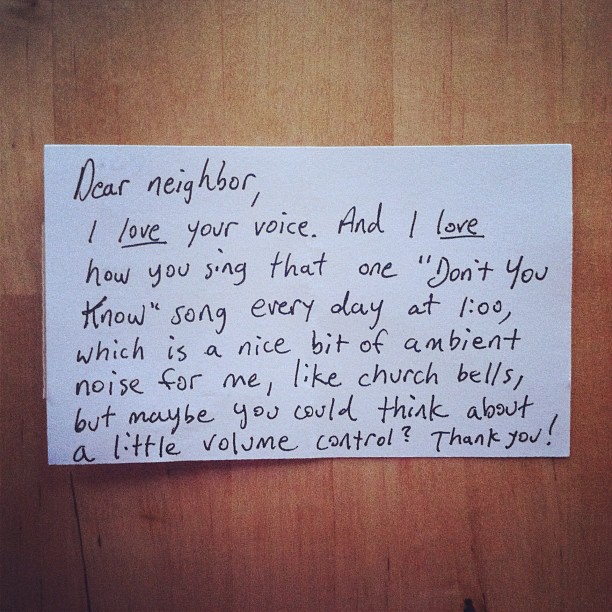 Dear neighbor,
I love your voice. And I love
how you sing that one "Don't You
Know" song every day at 1:00,
which is a nice bit of ambient
noise for me, like church bells,
but maybe you could think about
a little volume control? Thank you!